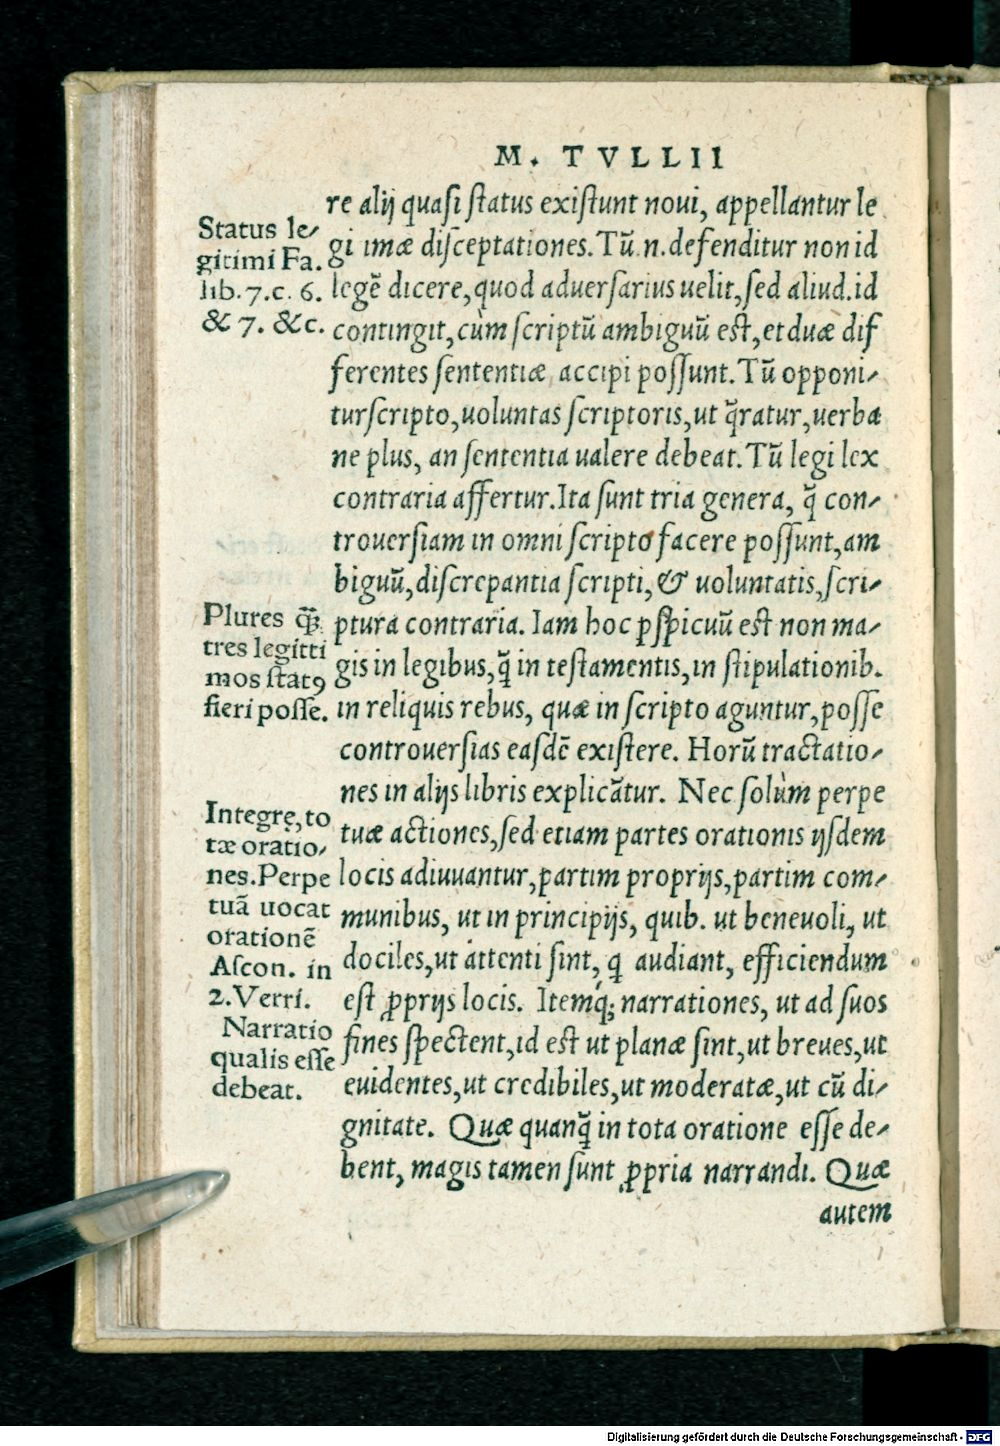 M. TVLLII
re alij quasi status existunt noui, appellantur le
gi imæ disceptationes. Tũ .n. defenditur non id
legẽ dicere, quod aduersarius uelit, sed aliud. id
contingit, cùm scriptũ ambiguũ est, et duæ dif
ferentes sententiæ accipi possunt. Tũ opponi-
tur scripto, uoluntas scriptoris, ut q̃ratur, uerba
ne plus, an sententia ualere debeat. Tũ legi lex
contraria affertur. Ita sunt tria genera, q̃ con-
trouersiam in omni scripto facere possunt, am
biguũ, discrepantia scripti, & uoluntatis, scri-
ptura contraria. Iam hoc ꝑspicuũ est non ma-
gis in legibus, ꝗ̃ in testamentis, in stipulationib.
in reliquis rebus, quæ in scripto aguntur, posse
controuersias easdẽ existere. Horũ tractatio-
nes in alijs libris explicãtur. Nec solùm perpe
tuæ actiones, sed etiam partes orationis ijsdem
locis adiuuantur, partim proprijs, partim com-
munibus, ut in principijs, quib. ut beneuoli, ut
dociles, ut attenti sint, ꝗ audiant, efficiendum
est ꝓprijs locis. Itemq́; narrationes, ut ad suos
fines spectent, id est ut planæ sint, ut breues, ut
euidentes, ut credibiles, ut moderatæ, ut cũ di-
gnitate. Quæ quanꝗ̃ in tota oratione esse de-
bent, magis tamen sunt ꝓpria narrandi. Quæ
autem
Status le-
gitimi Fa.
lib. 7. c. 6.
& 7. &c.
Plures ꝗ̃
tres legitti
mos statꝰ
fieri posse.
Integrę, to
tæ oratio-
nes. Perpe
tuã uocat
orationẽ
Ascon. in
2. Verri.
Narratio
qualis esse
debeat.
Digitalisierung gefördert durch die Deutsche Forschungsgemeinschaft - DFG